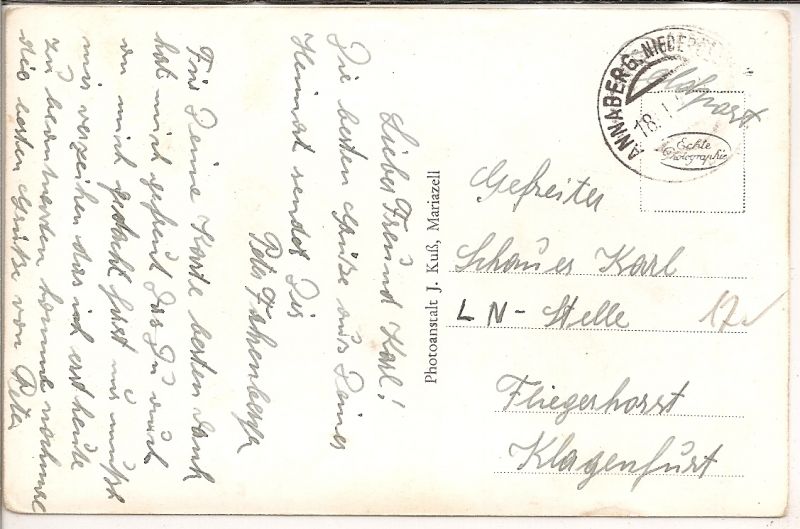 Lieber Freund Karl!
Die besten Grüße aus Deiner
Heimat sendet Dir
Peter
Für Deine Karte besten Dank
hat mich gefreut das Du auch
an mich gedacht hast
mir verzeihen das ich erst heute
zu beantworten komme nochmals
die besten Grüße von Peter
Photoanstalt J. Kuß, Mariazell
ANNABERG, NIEDER
18.
Feldpost
Echte
Photographie
Gefreiter
Schauer Karl
LN-Stelle
17
Fliegerhorst
Klagenfurt